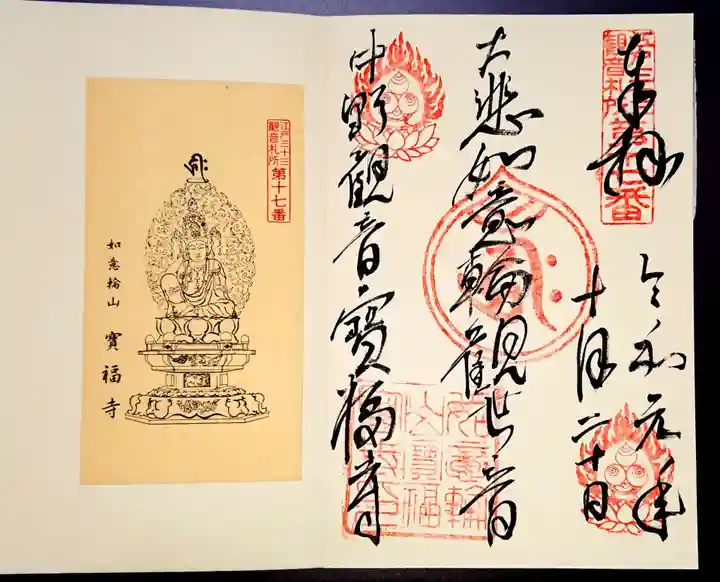 奉拝
観音札所
第十七番
令和元年
十月二十日
大悲如意輪観世音
中野観音寶福寺
如意輪
山寶福
江戸三十三
観音札所
第十七番
如意輪山 寶福寺